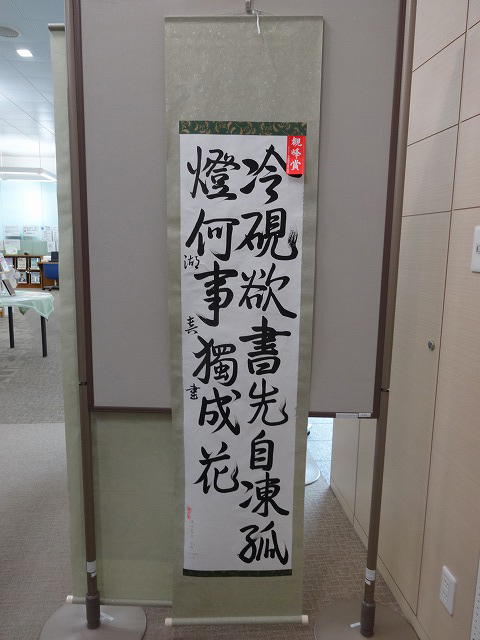 観峰賞
冷硯欲書先自凍孤
燈何事獨成花
湖
書